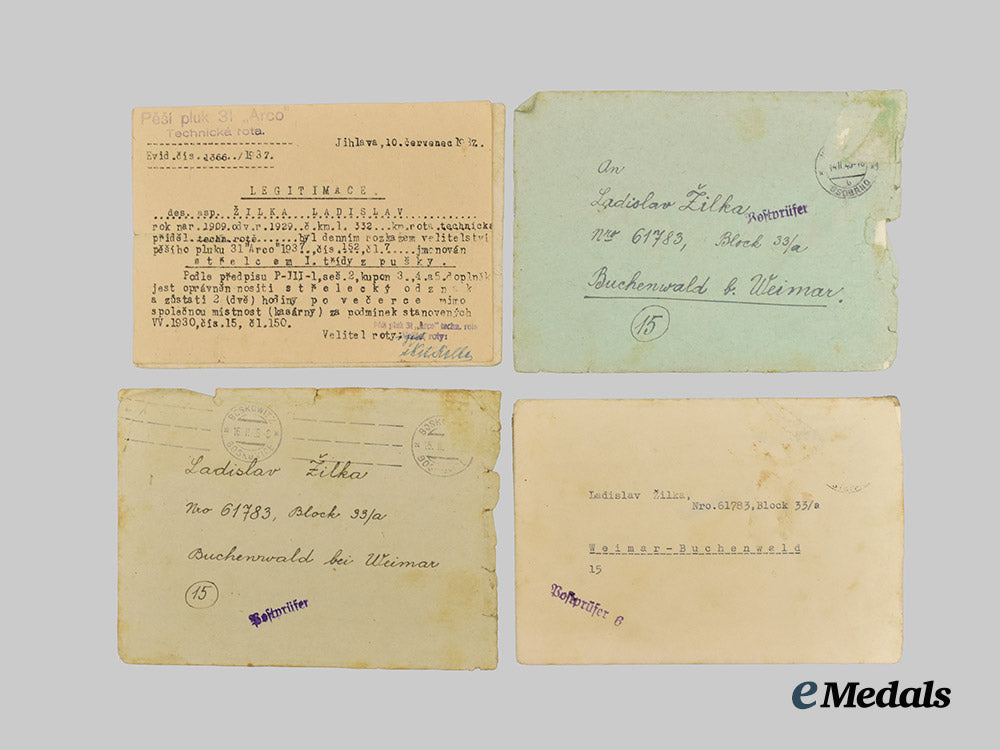 Pěší pluk 31 „Arco"
Technická rota.
Evid.čís. 1366../1937.
Jihlava,10.červenec 1937.
LEGITIMACE.
des. asp. ŽILKA LADISLAV
rok nar.1909.odv.r.1929.č.km.l. 332...km.rota technická
přiděl.techn.rotě......byl denním rozkazem velitelství
pěšího pluku 31"Arco"1937,čís.152,čl.7...jmenován
střelcem I.třídy z pušky.
Podle předpisu P-III-1,seš.2,kupon 3.,4.a5.doplněk
jest oprávněn nositi střelecký odznak
a zůstati 2 (dvě) hodiny po večerce mimo
společnou místnost (kasárny) za podmínek stanovených
VV.1930,čís.15, čl.150.
Pěší pluk 31 „Arco" techn. rota
Velitel roty:
An
Ladislav Žilka
Postprüfer
Nro 61783, Block 33/a
Buchenwald b. Weimar.
15
BOSKOWITZ
Ladislav Žilka
Nro 61783, Block 33/a
Buchenwald bei Weimar
15
Postprüfer
Ladislav Žilka,
Nro.61783,Block 33/a
Weimar-Buchenwald
15
Postprüfer 6
eMedals